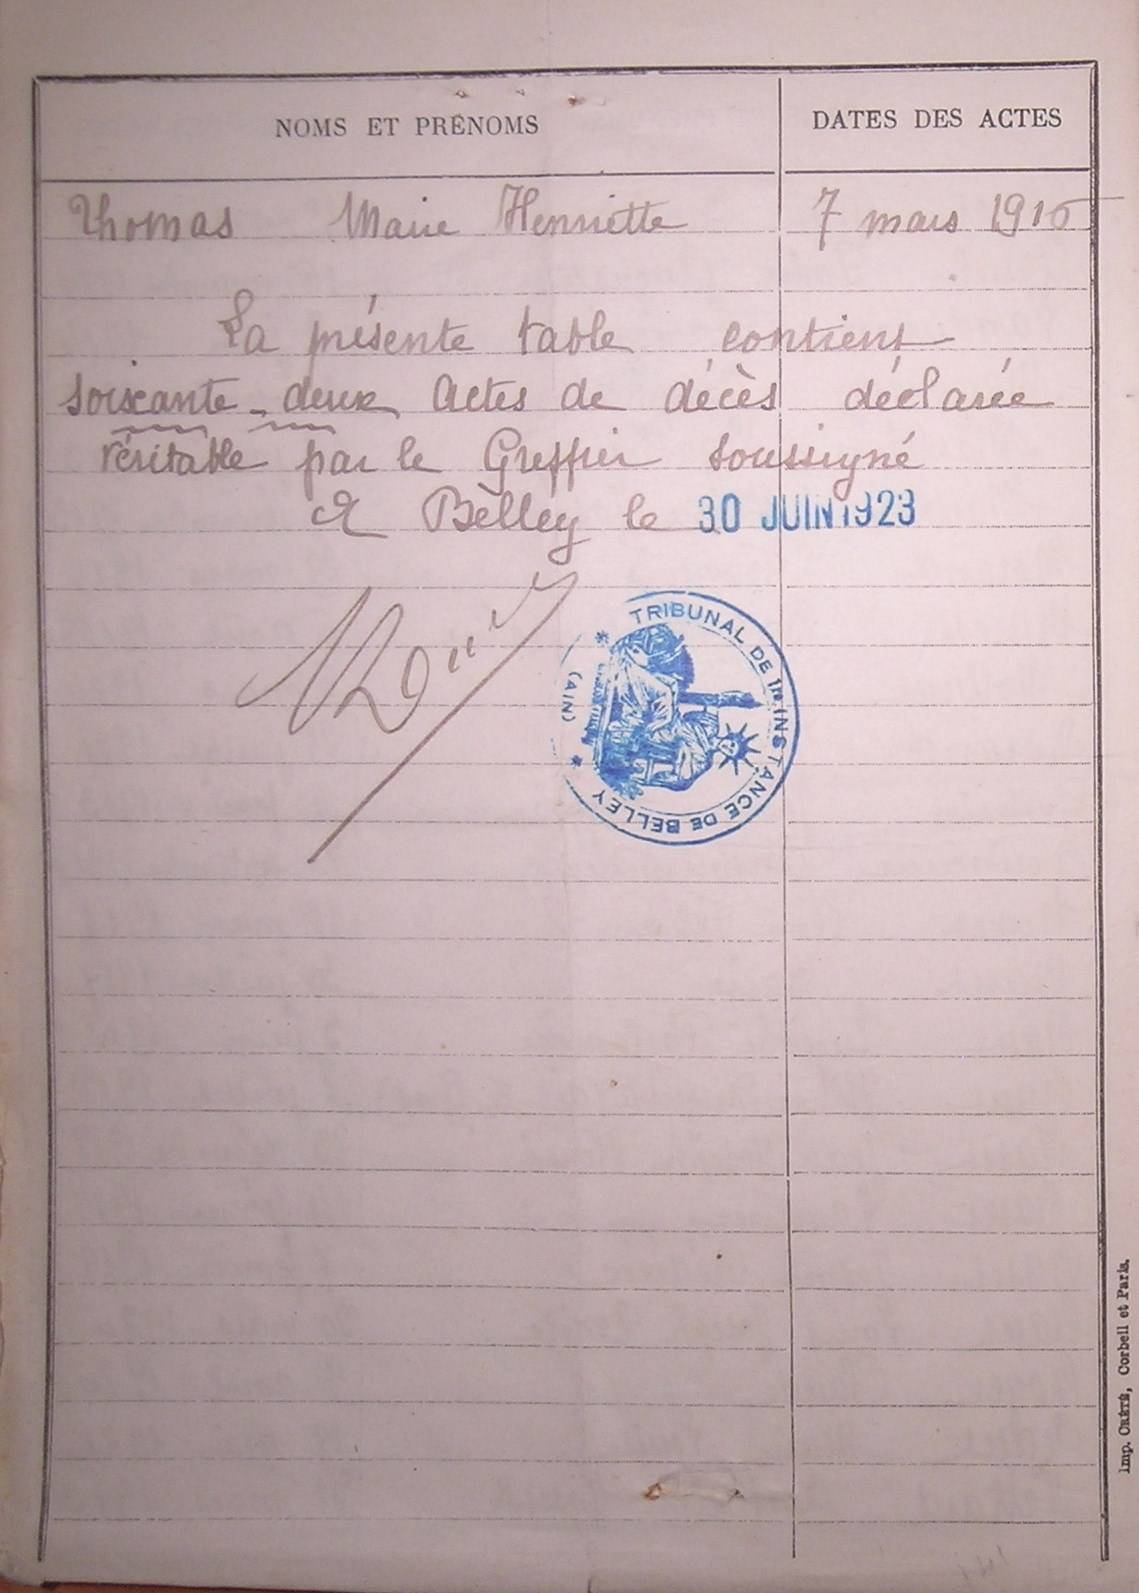 NOMS ET PRÉNOMS DATES DES ACTES
Thomas Marie Henriette 7 mars 1916
La présente table contient
soixante-deux actes de décès déclarée
véritable par le Greffier soussigné
A Belley le 30 JUIN 1923
TRIBUNAL DE 1re INSTANCE DE BELLEY
(AIN)
Imp. CRÉTÉ, Corbeil et Paris.